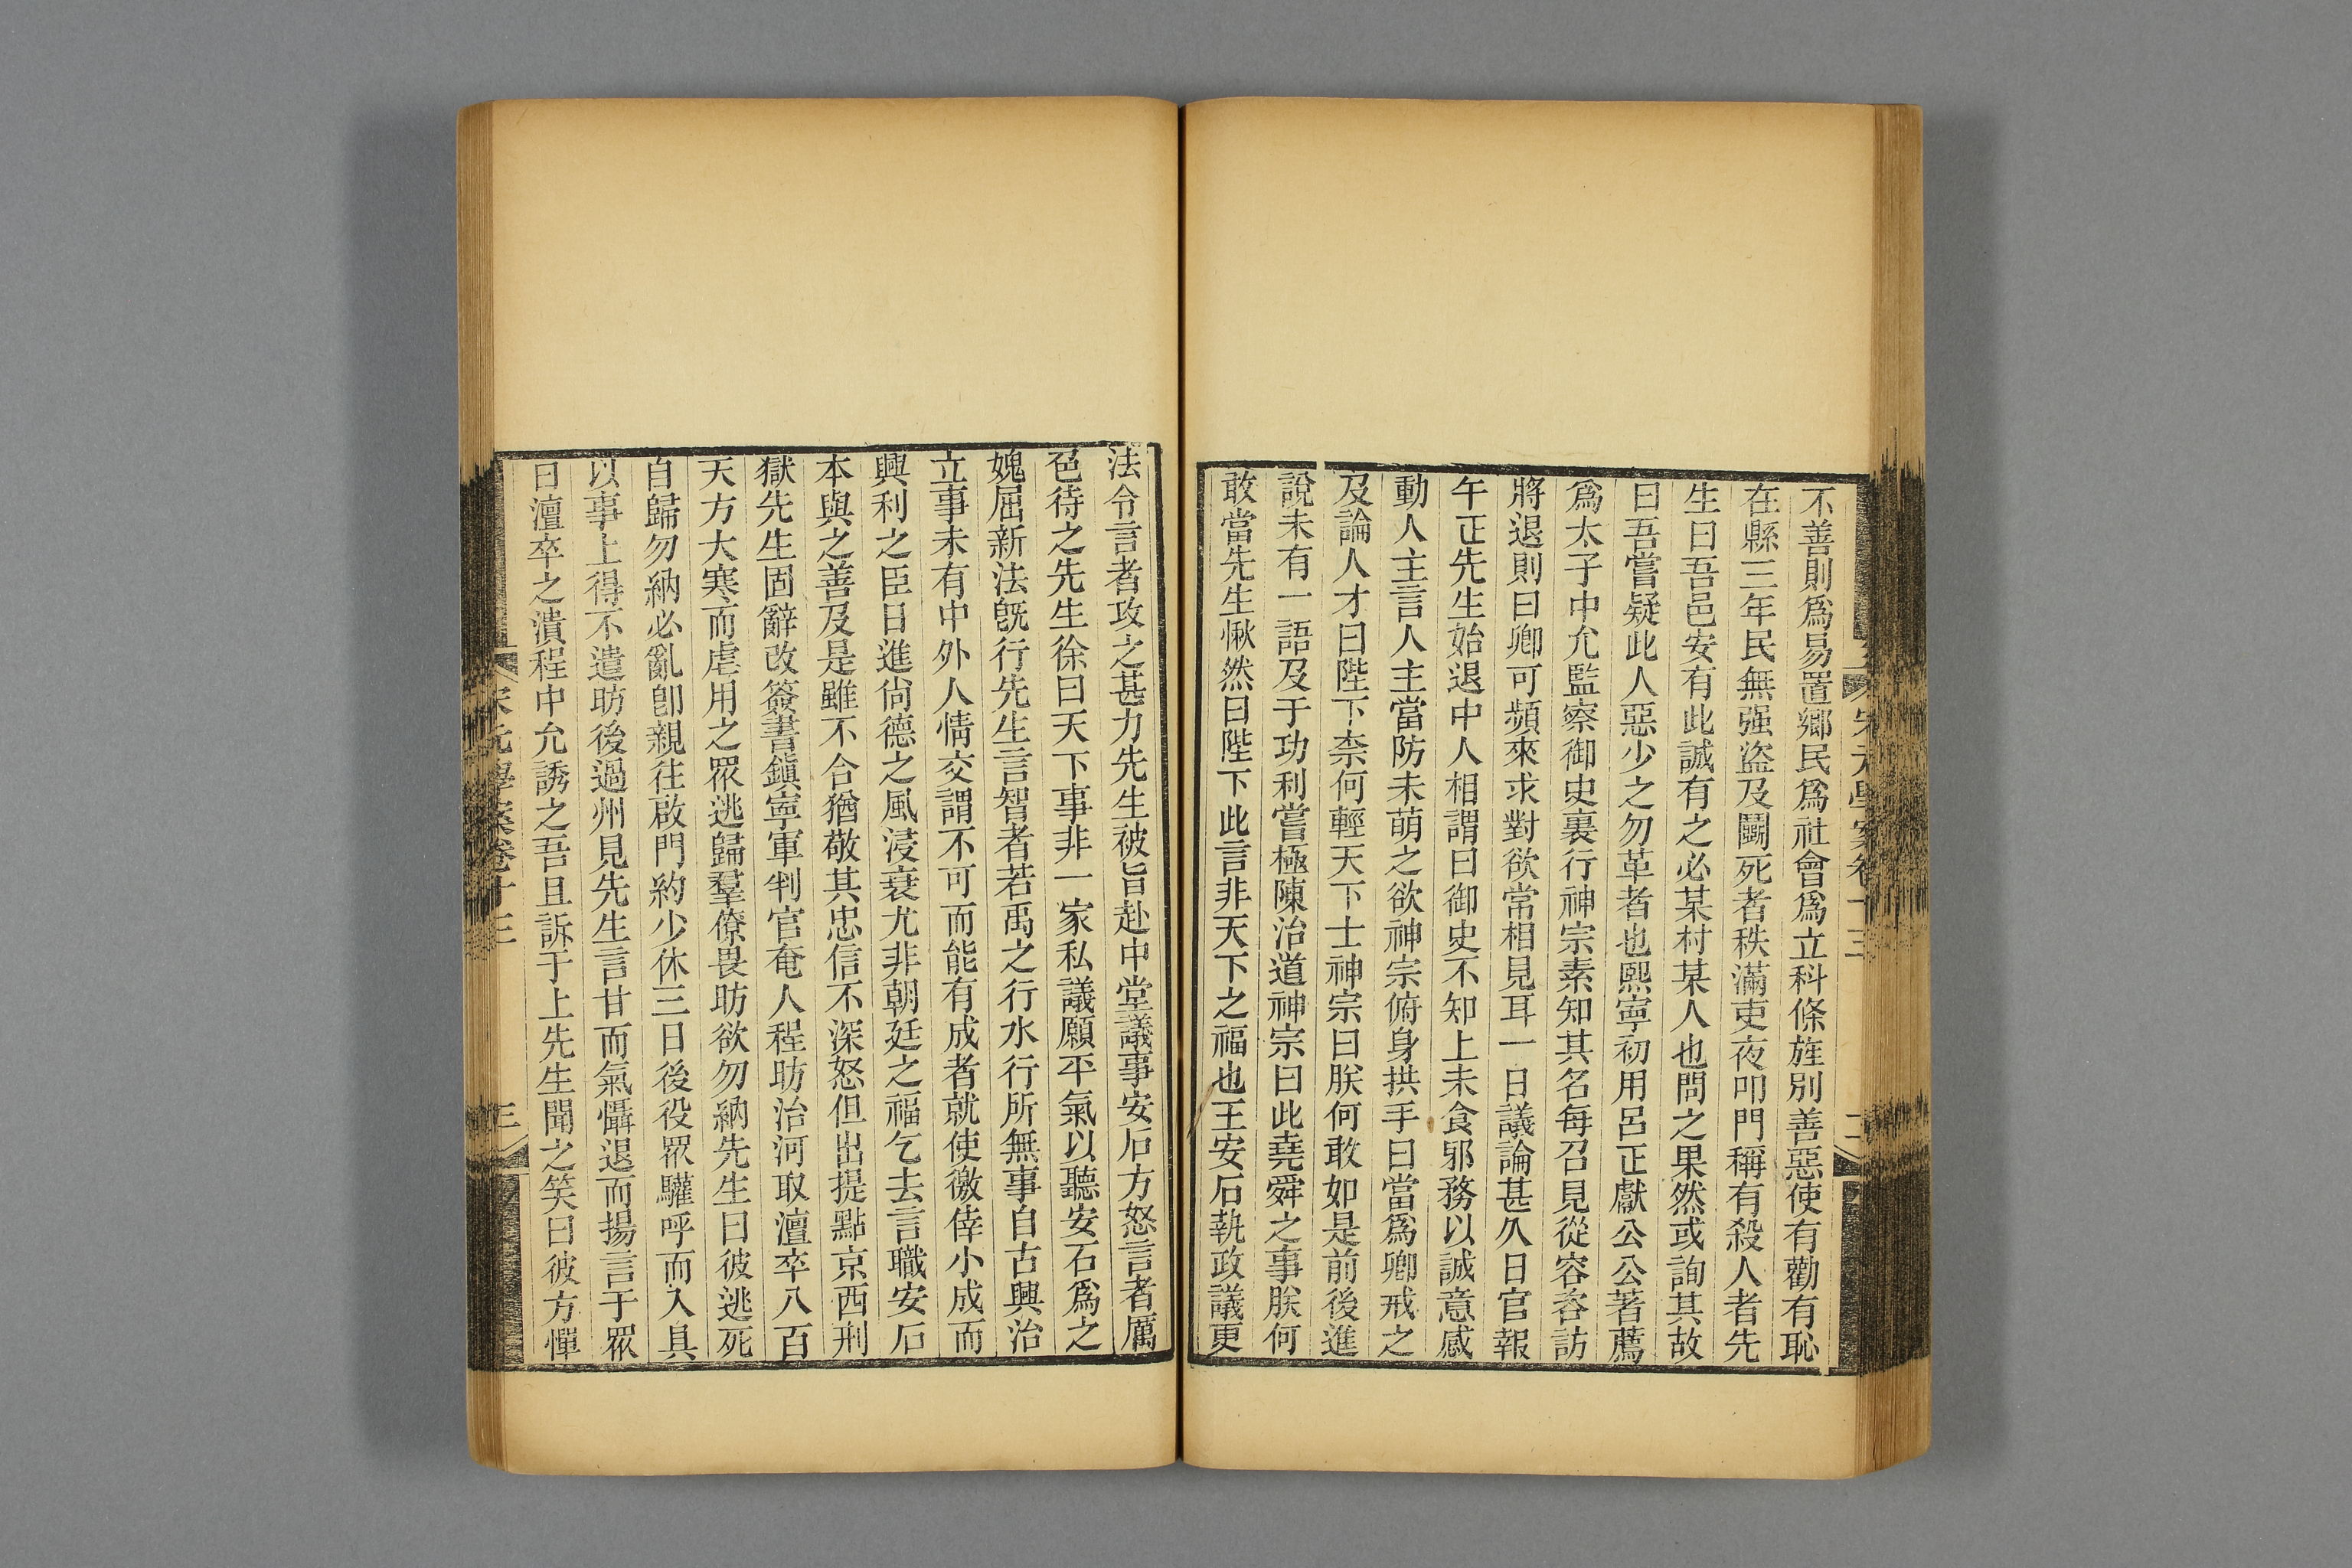 不善則爲易置鄉民爲社會爲立科條旌別善惡使有勸有恥
在縣三年民無强盜及鬭死者秩滿吏夜叩門稱有殺人者先
生曰吾邑安有此誠有之必某村某人也問之果然或詢其故
曰吾嘗疑此人惡少之勿革者也熙寧初用呂正獻公公著薦
爲太子中允監察御史裏行神宗素知其名每召見從容咨訪
將退則曰卿可頻來求對欲常相見耳一日議論甚久日官報
午正先生始退中人相謂曰御史不知上未食邪務以誠意感
動人主言人主當防未萌之欲神宗俯身拱手曰當爲卿戒之
及論人才曰陛下柰何輕天下士神宗曰朕何敢如是前後進
說未有一語及于功利嘗極陳治道神宗曰此堯舜之事朕何
敢當先生愀然曰陛下此言非天下之福也王安石執政議更
法令言者攻之甚力先生被旨赴中堂議事安石方怒言者厲
色待之先生徐曰天下事非一家私議願平氣以聽安石爲之
媿屈新法旣行先生言智者若禹之行水行所無事自古興治
立事未有中外人情交謂不可而能有成者就使徼倖小成而
興利之臣日進尙德之風浸衰尤非朝廷之福乞去言職安石
本與之善及是雖不合猶敬其忠信不深怒但出提點京西刑
獄先生固辭改簽書鎭寧軍判官奄人程昉治河取澶卒八百
天方大寒而虐用之眾逃歸羣僚畏昉欲勿納先生曰彼逃死
自歸勿納必亂卽親往啟門約少休三日後役眾驩呼而入具
以事上得不遣昉後過州見先生言甘而氣懾退而揚言于眾
曰澶卒之潰程中允誘之吾且訴于上先生聞之笑曰彼方憚
宋元學案卷十三
三